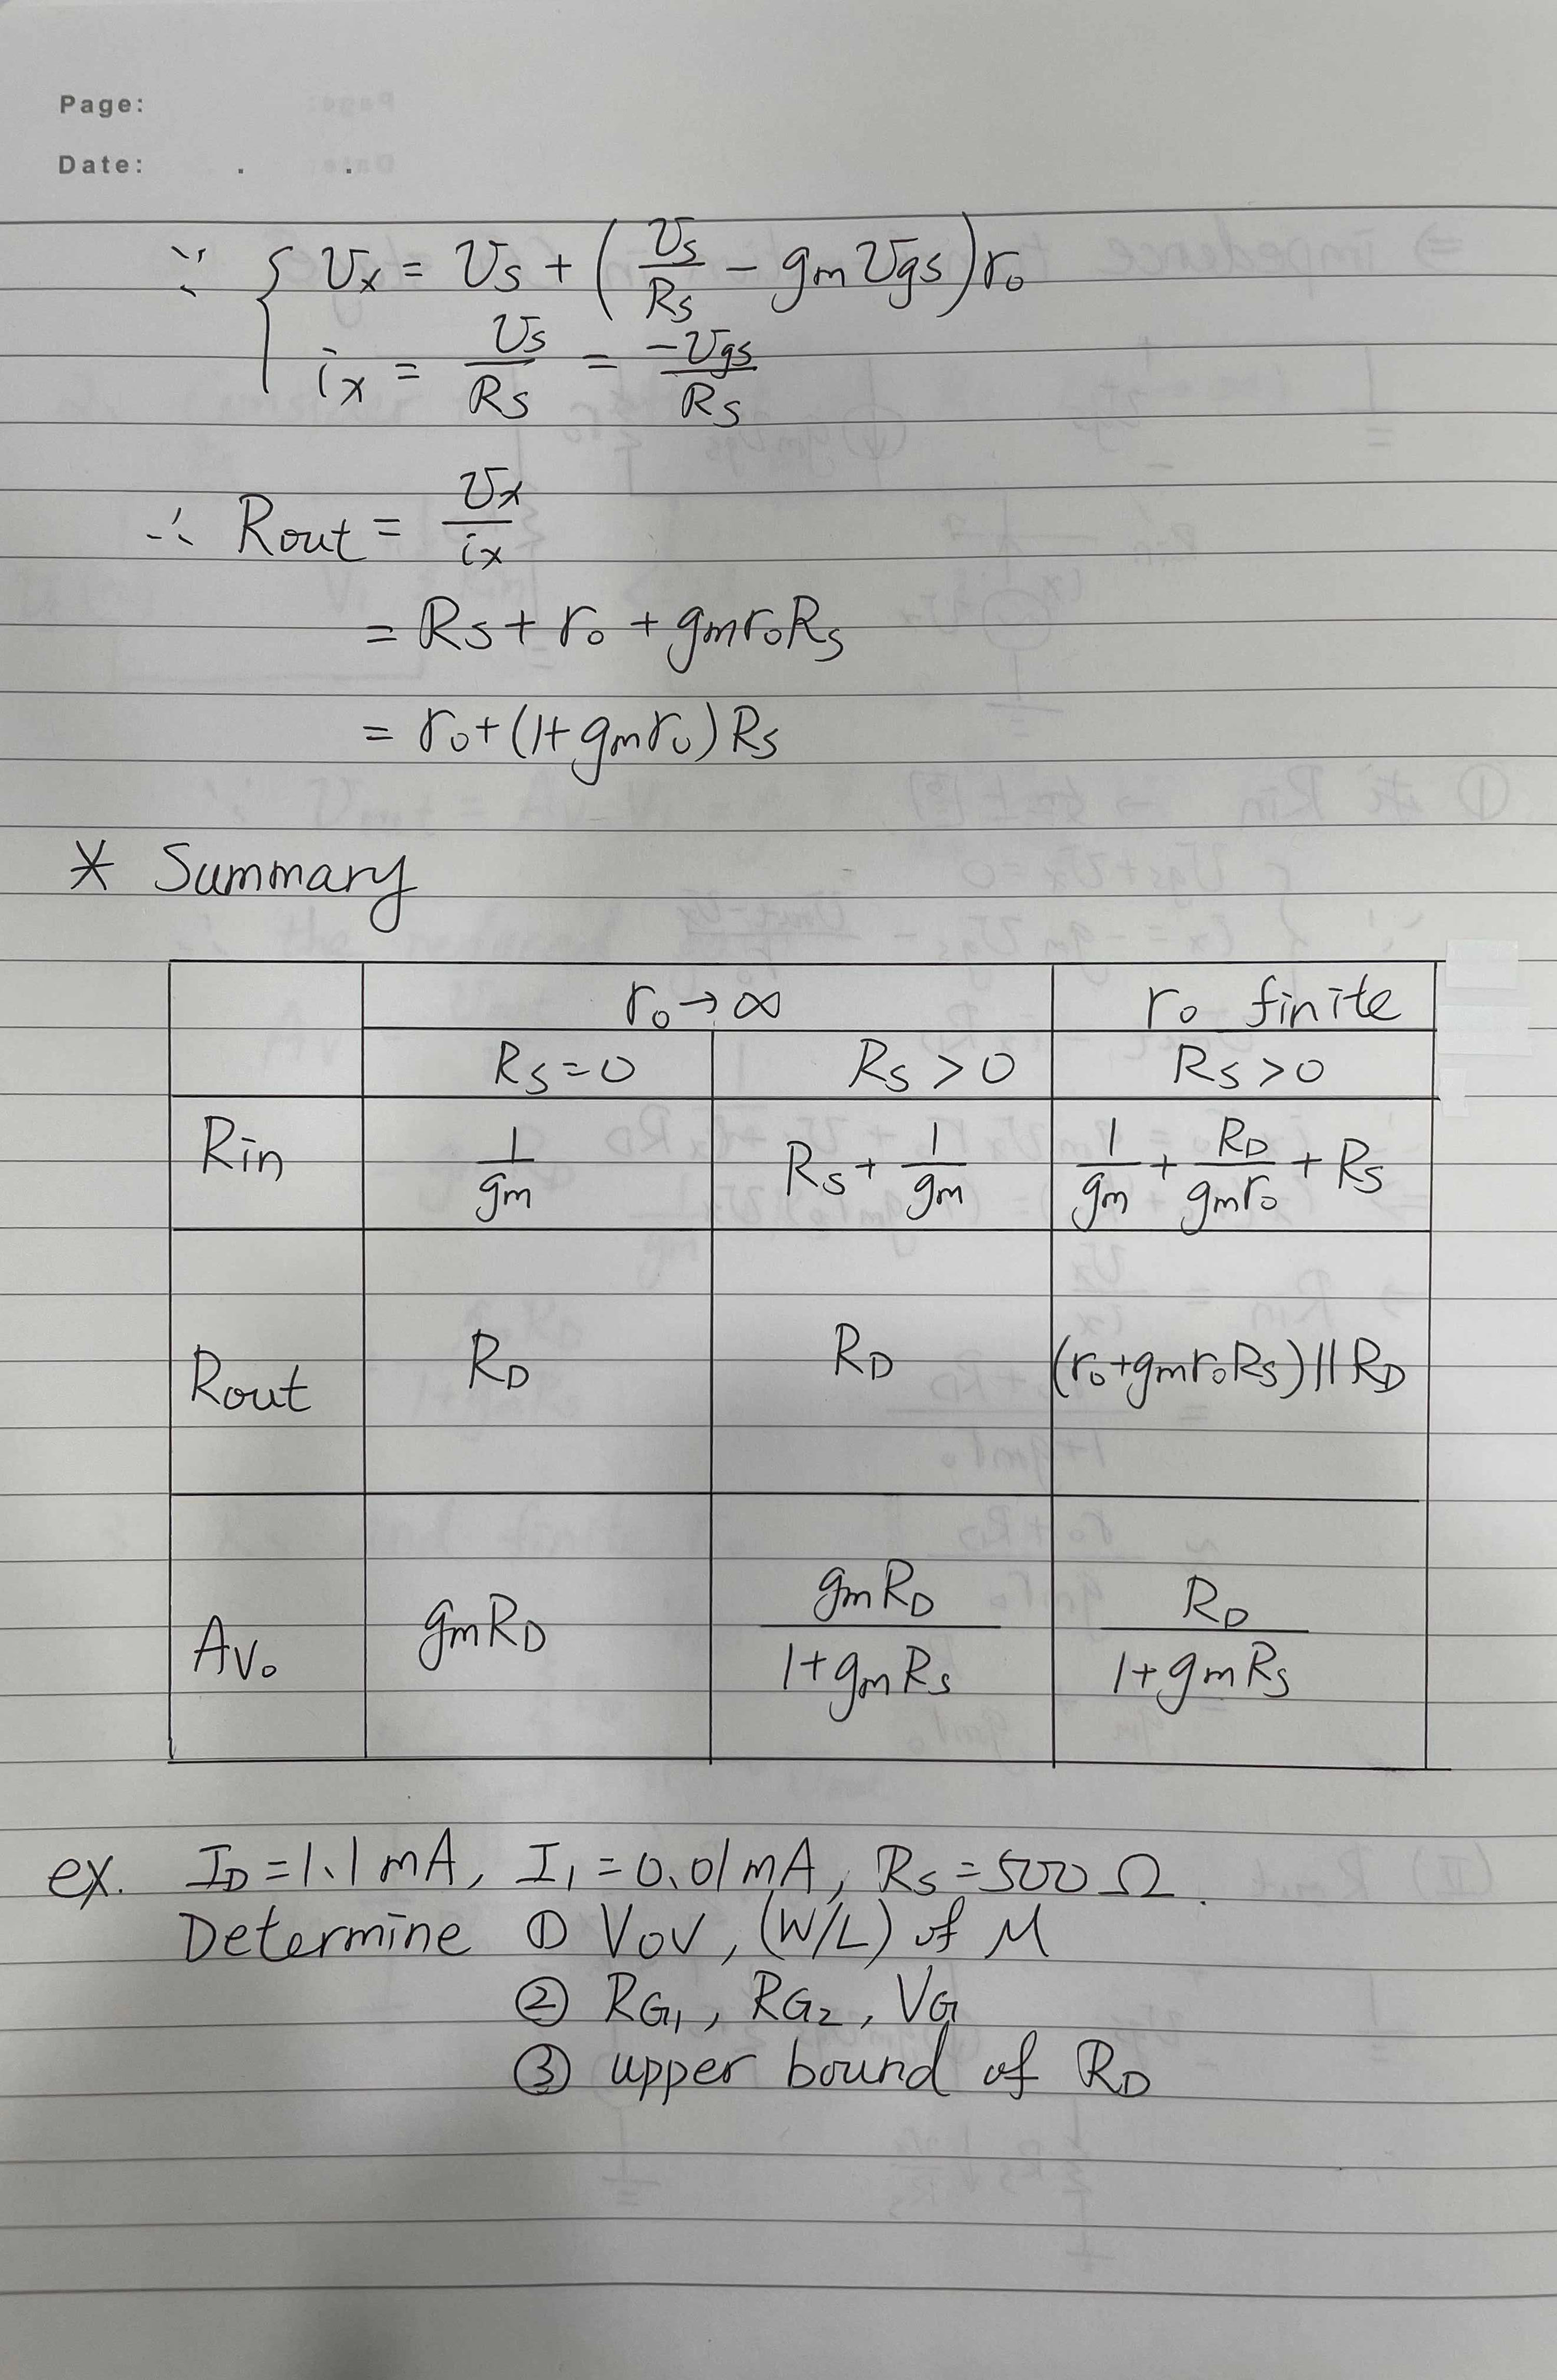 Page:
Date: . .
∵ { vx = vs + (vs/Rs − gm vgs) ro
ix = vs/Rs = −vgs/Rs
∴ Rout = vx/ix
= Rs + ro + gmroRs
= ro + (1+gmro) Rs
* Summary
ro → ∞ ro finite
Rs = 0 Rs > 0 Rs > 0
Rin 1/gm Rs + 1/gm 1/gm + RD/gmro + Rs
Rout RD RD (ro+gmroRs) || RD
Avo gmRD gmRD/1+gmRs RD/1+gmRs
ex. ID = 1.1 mA, I1 = 0.01 mA, Rs = 500 Ω.
Determine ① VOV, (W/L) of M
② RG1, RG2, VG
③ upper bound of RD